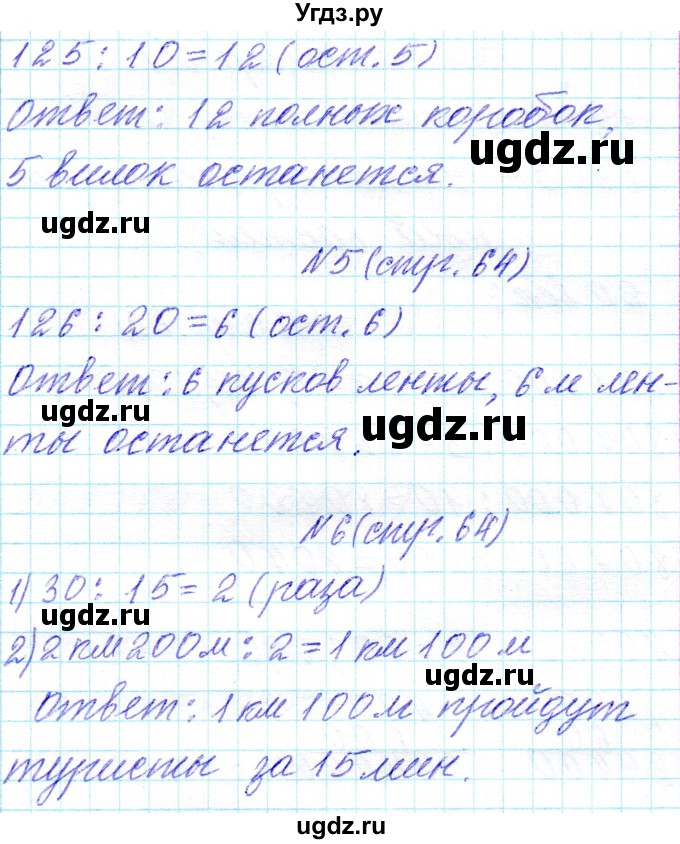 Угдз.ру
125 : 10 = 12 (ост. 5)
Ответ: 12 полных коробок,
ugdz.ru
5 вилок останется.
ugdz.ru
№5 (стр. 64)
126 : 20 = 6 (ост. 6)
Ответ: 6 кусков ленты, 6 м лен-
ugdz.ru
ты останется.
ugdz.ru
№6 (стр. 64)
1) 30 : 15 = 2 (раза)
ugdz.ru
2) 2 км 200 м : 2 = 1 км 100 м
ugdz.ru
Ответ: 1 км 100 м пройдут
туристы за 15 мин.
ugdz.ru